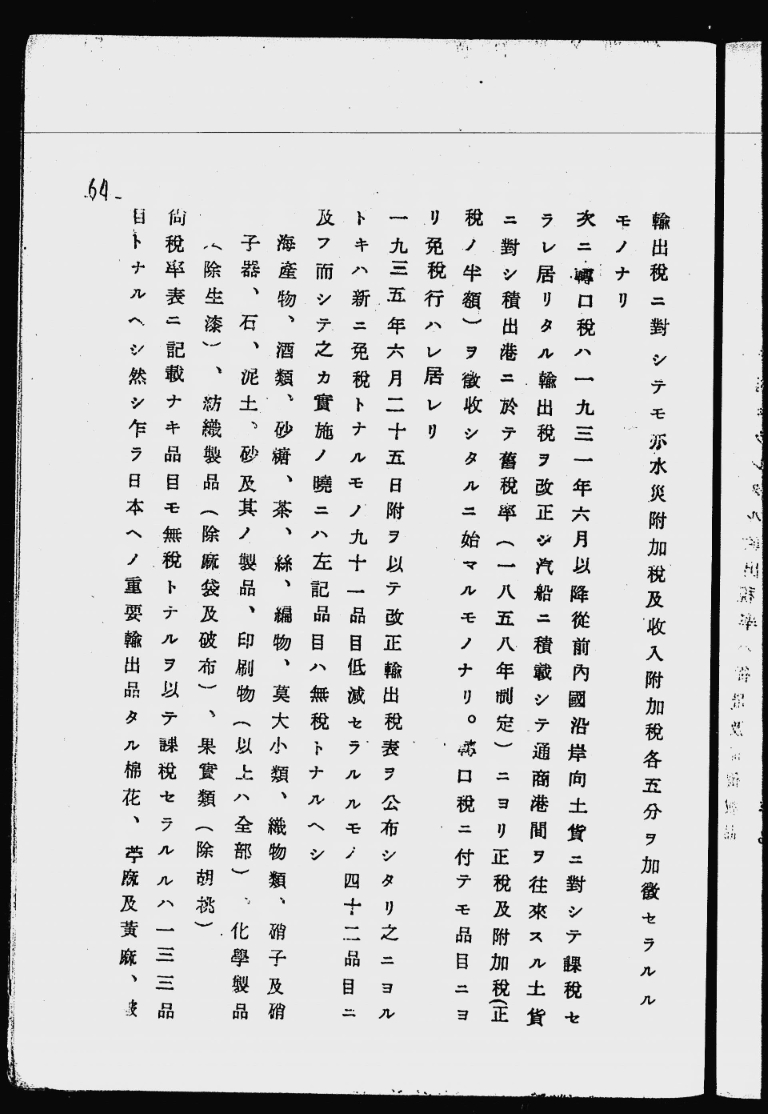 64
輸出税ニ對シテモ亦水災附加税及收入附加税各五分ヲ加徵セラルル
モノナリ
次ニ轉口税ハ一九三一年六月以降從前內國沿岸向土貨ニ對シテ課税セ
ラレ居リタル輸出税ヲ改正シ汽船ニ積載シテ通商港間ヲ往來スル土貨
ニ對シ積出港ニ於テ舊税率(一八五八年制定)ニヨリ正税及附加税(正
税ノ半額)ヲ徵收シタルニ始マルモノナリ。轉口税ニ付テモ品目ニヨ
リ免税行ハレ居レリ
一九三五年六月二十五日附ヲ以テ改正輸出税表ヲ公布シタリ之ニヨル
トキハ新ニ免税トナルモノ九十一品目低減セラルルモノ四十二品目ニ
及フ而シテ之カ實施ノ曉ニハ左記品目ハ無税トナルヘシ
海產物、酒類、砂糖、茶、絲、編物、莫大小類、織物類、硝子及硝
子器、石、泥土、砂及其ノ製品、印刷物(以上ハ全部)、化學製品
(除生漆)、紡織製品(除麻袋及破布)、果實類(除胡桃)
尙税率表ニ記載ナキ品目モ無税トナルヲ以テ課税セラルルハ一三三品
目トナルヘシ然シ乍ラ日本ヘノ重要輸出品タル棉花、苧麻及黃麻、